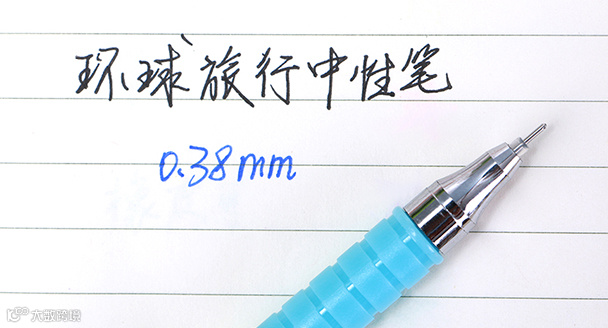 环球旅行中性笔
0.38mm
大数跨境